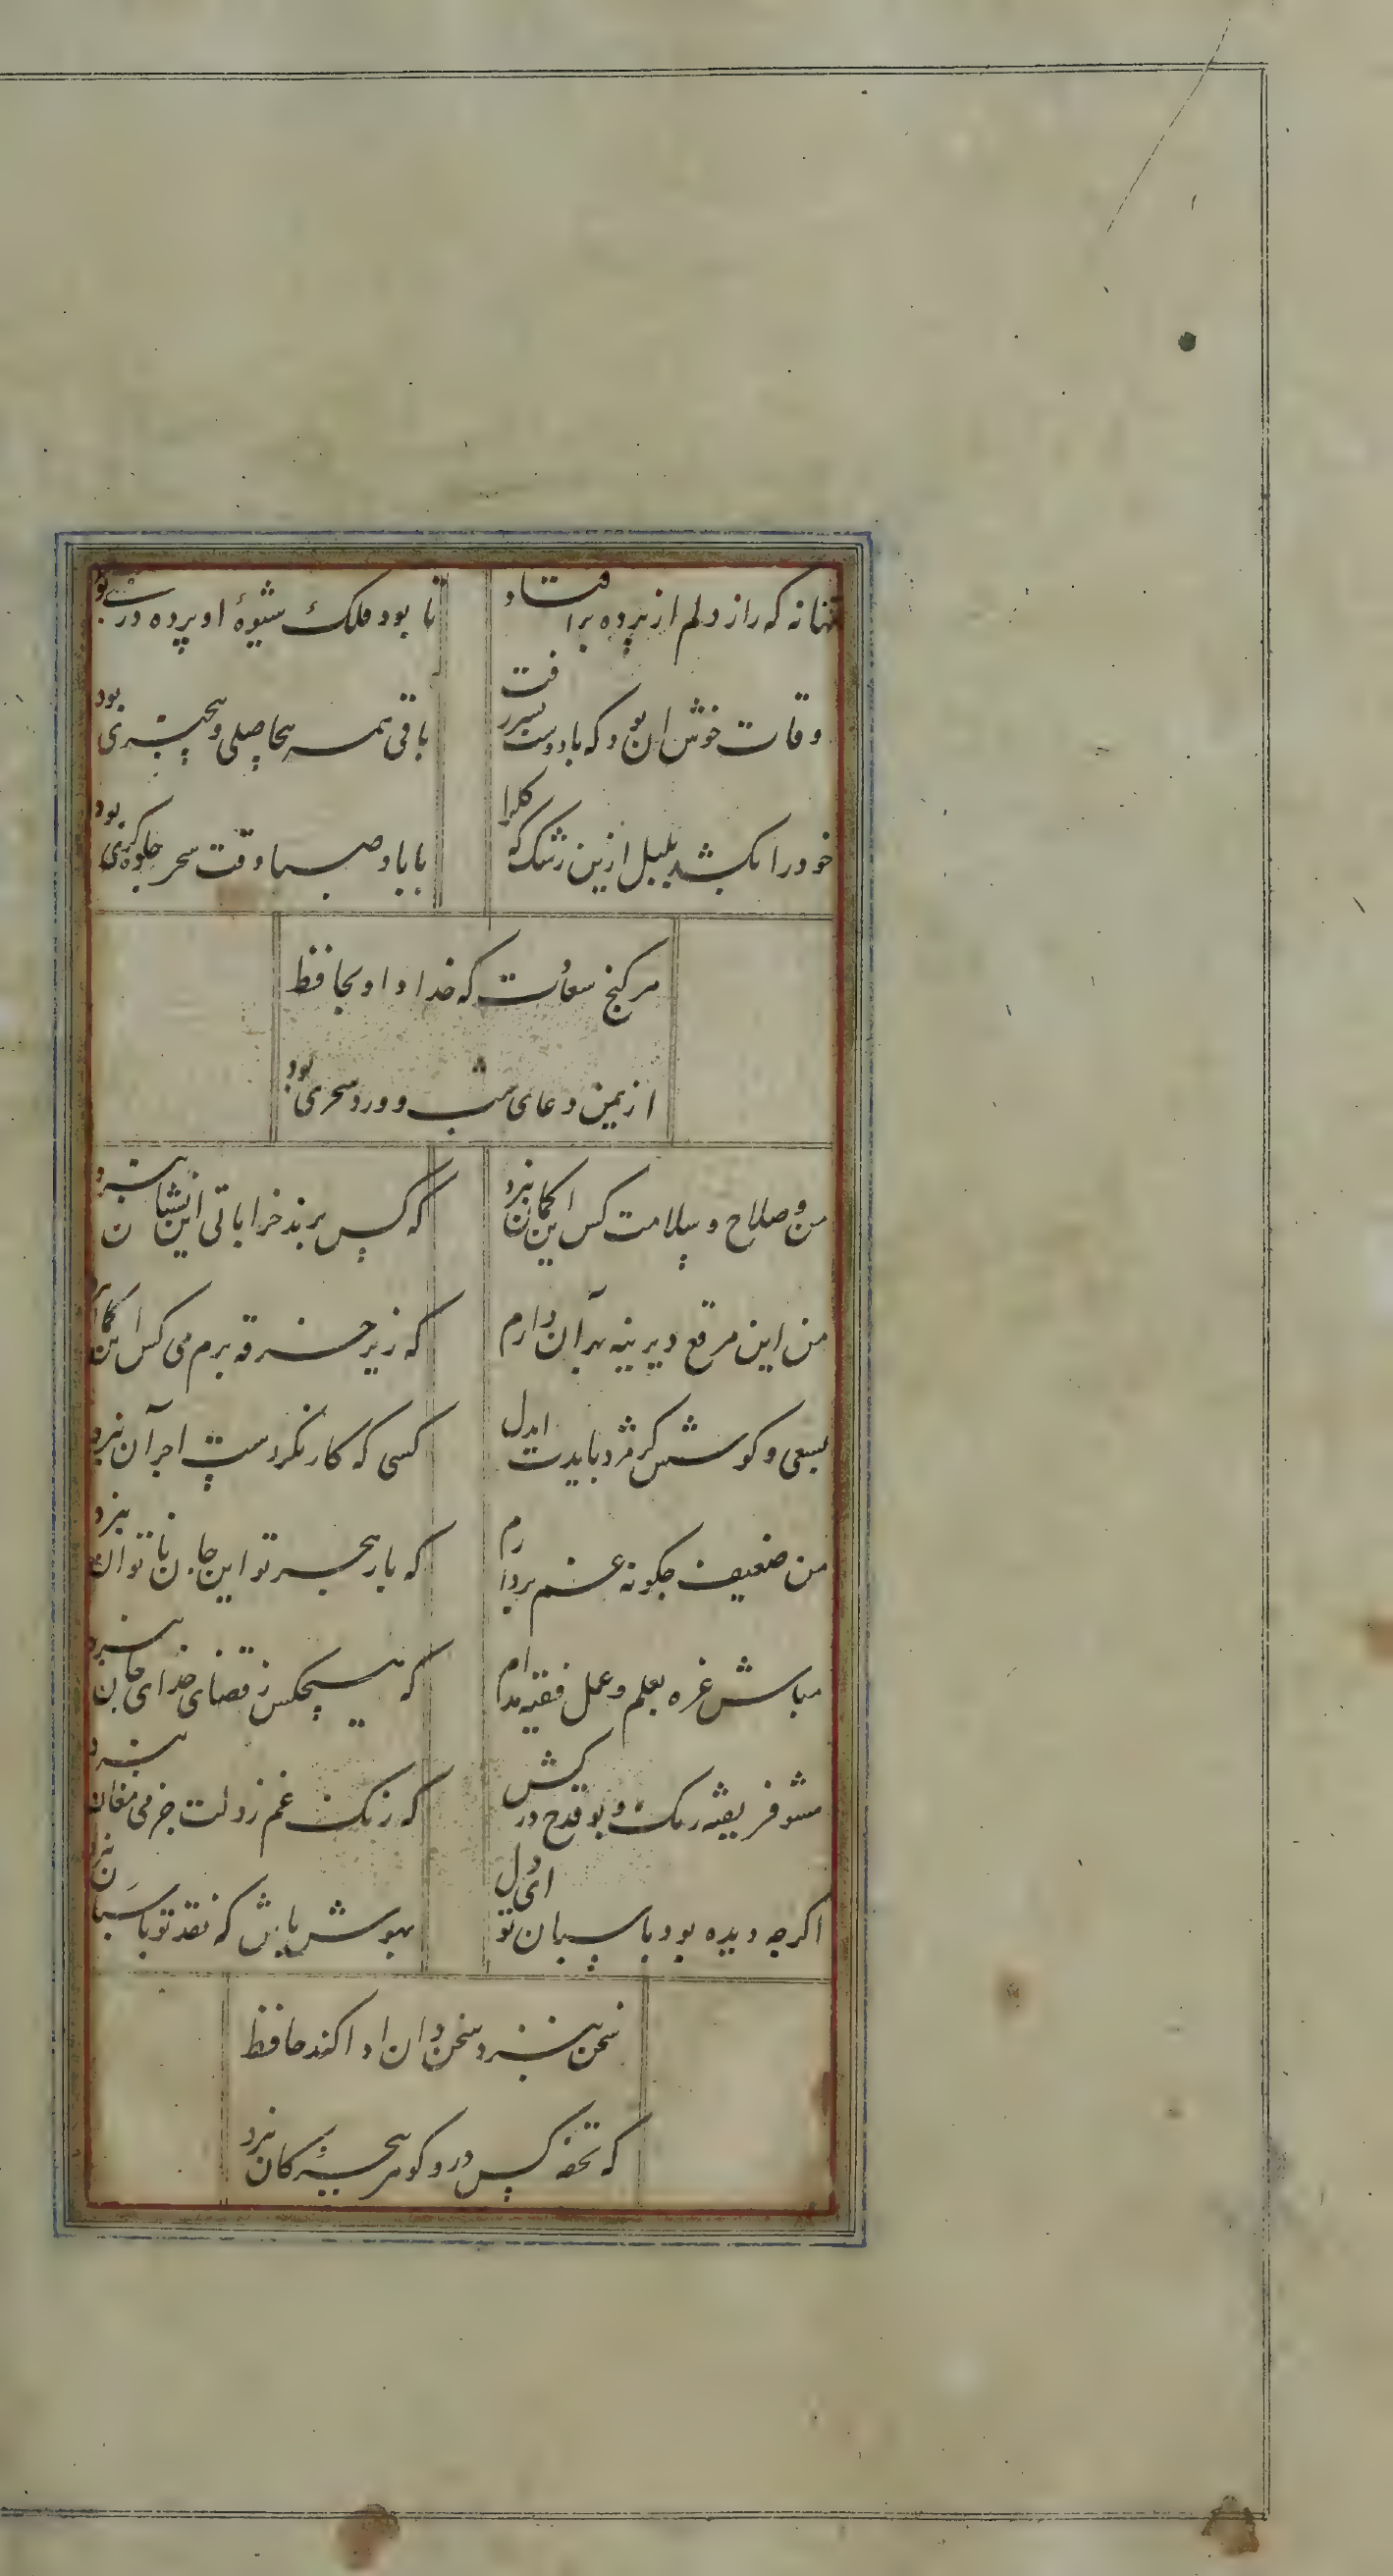 تنها نه که راز دلم از پرده برافتاد
تا بود فلک شیوهٔ او پرده دری بود
وقات خوش ان بود که با دوست بسر رفت
باقی همه بیحاصلی و بیخبری بود
خود را بکشد بلبل ازین رشک که کلرا
با باد صبا وقت سحر جلوه کری بود
هر کنج سعادت که خدا داد بحافظ
از یمن دعای شب و ورد سحری بود
من و صلاح و سلامت کس این کمان نبرد
که کس برند خراباتی این نشان نبرد
من این مرقع دیرینه بهر آن دارم
که زیر خرقه برم می کس این کمان نبرد
بسعی و کوشش کر مزد بایدت ایدل
کسی که کار نکردست اجر آن نبرد
من ضعیف چکونه غم بردارم
که بار هجر تو این جان ناتوان نبرد
مباش غره بعلم و عمل فقیه مدام
که هیچکس ز قضای خدای جان نبرد
مشو فریفته رنک و بو قدح درکش
که زنک غم ز دلت جز می مغان نبرد
اکرچه دیده بود پاسبان تو ای دل
بهوش باش که نقد تو پاسبان نبرد
سخن بنزد سخن دان ادا کند حافظ
که تحفه کس در و کوهر ببحر و کان نبرد